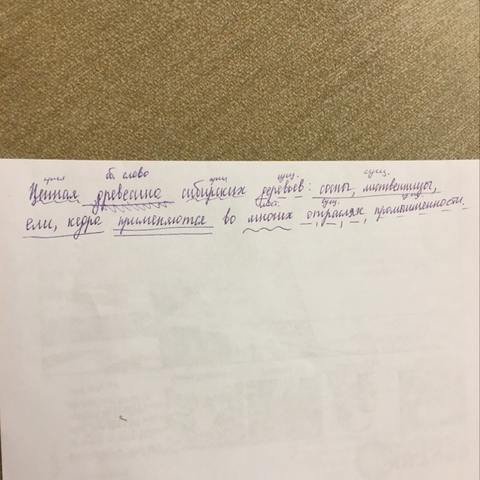 прил об. слово прил сущ. сущ.
Ценная древесина сибирских деревьев: сосны, лиственницы,
сущ.
ели, кедра применяются во многих отраслях промышленности.